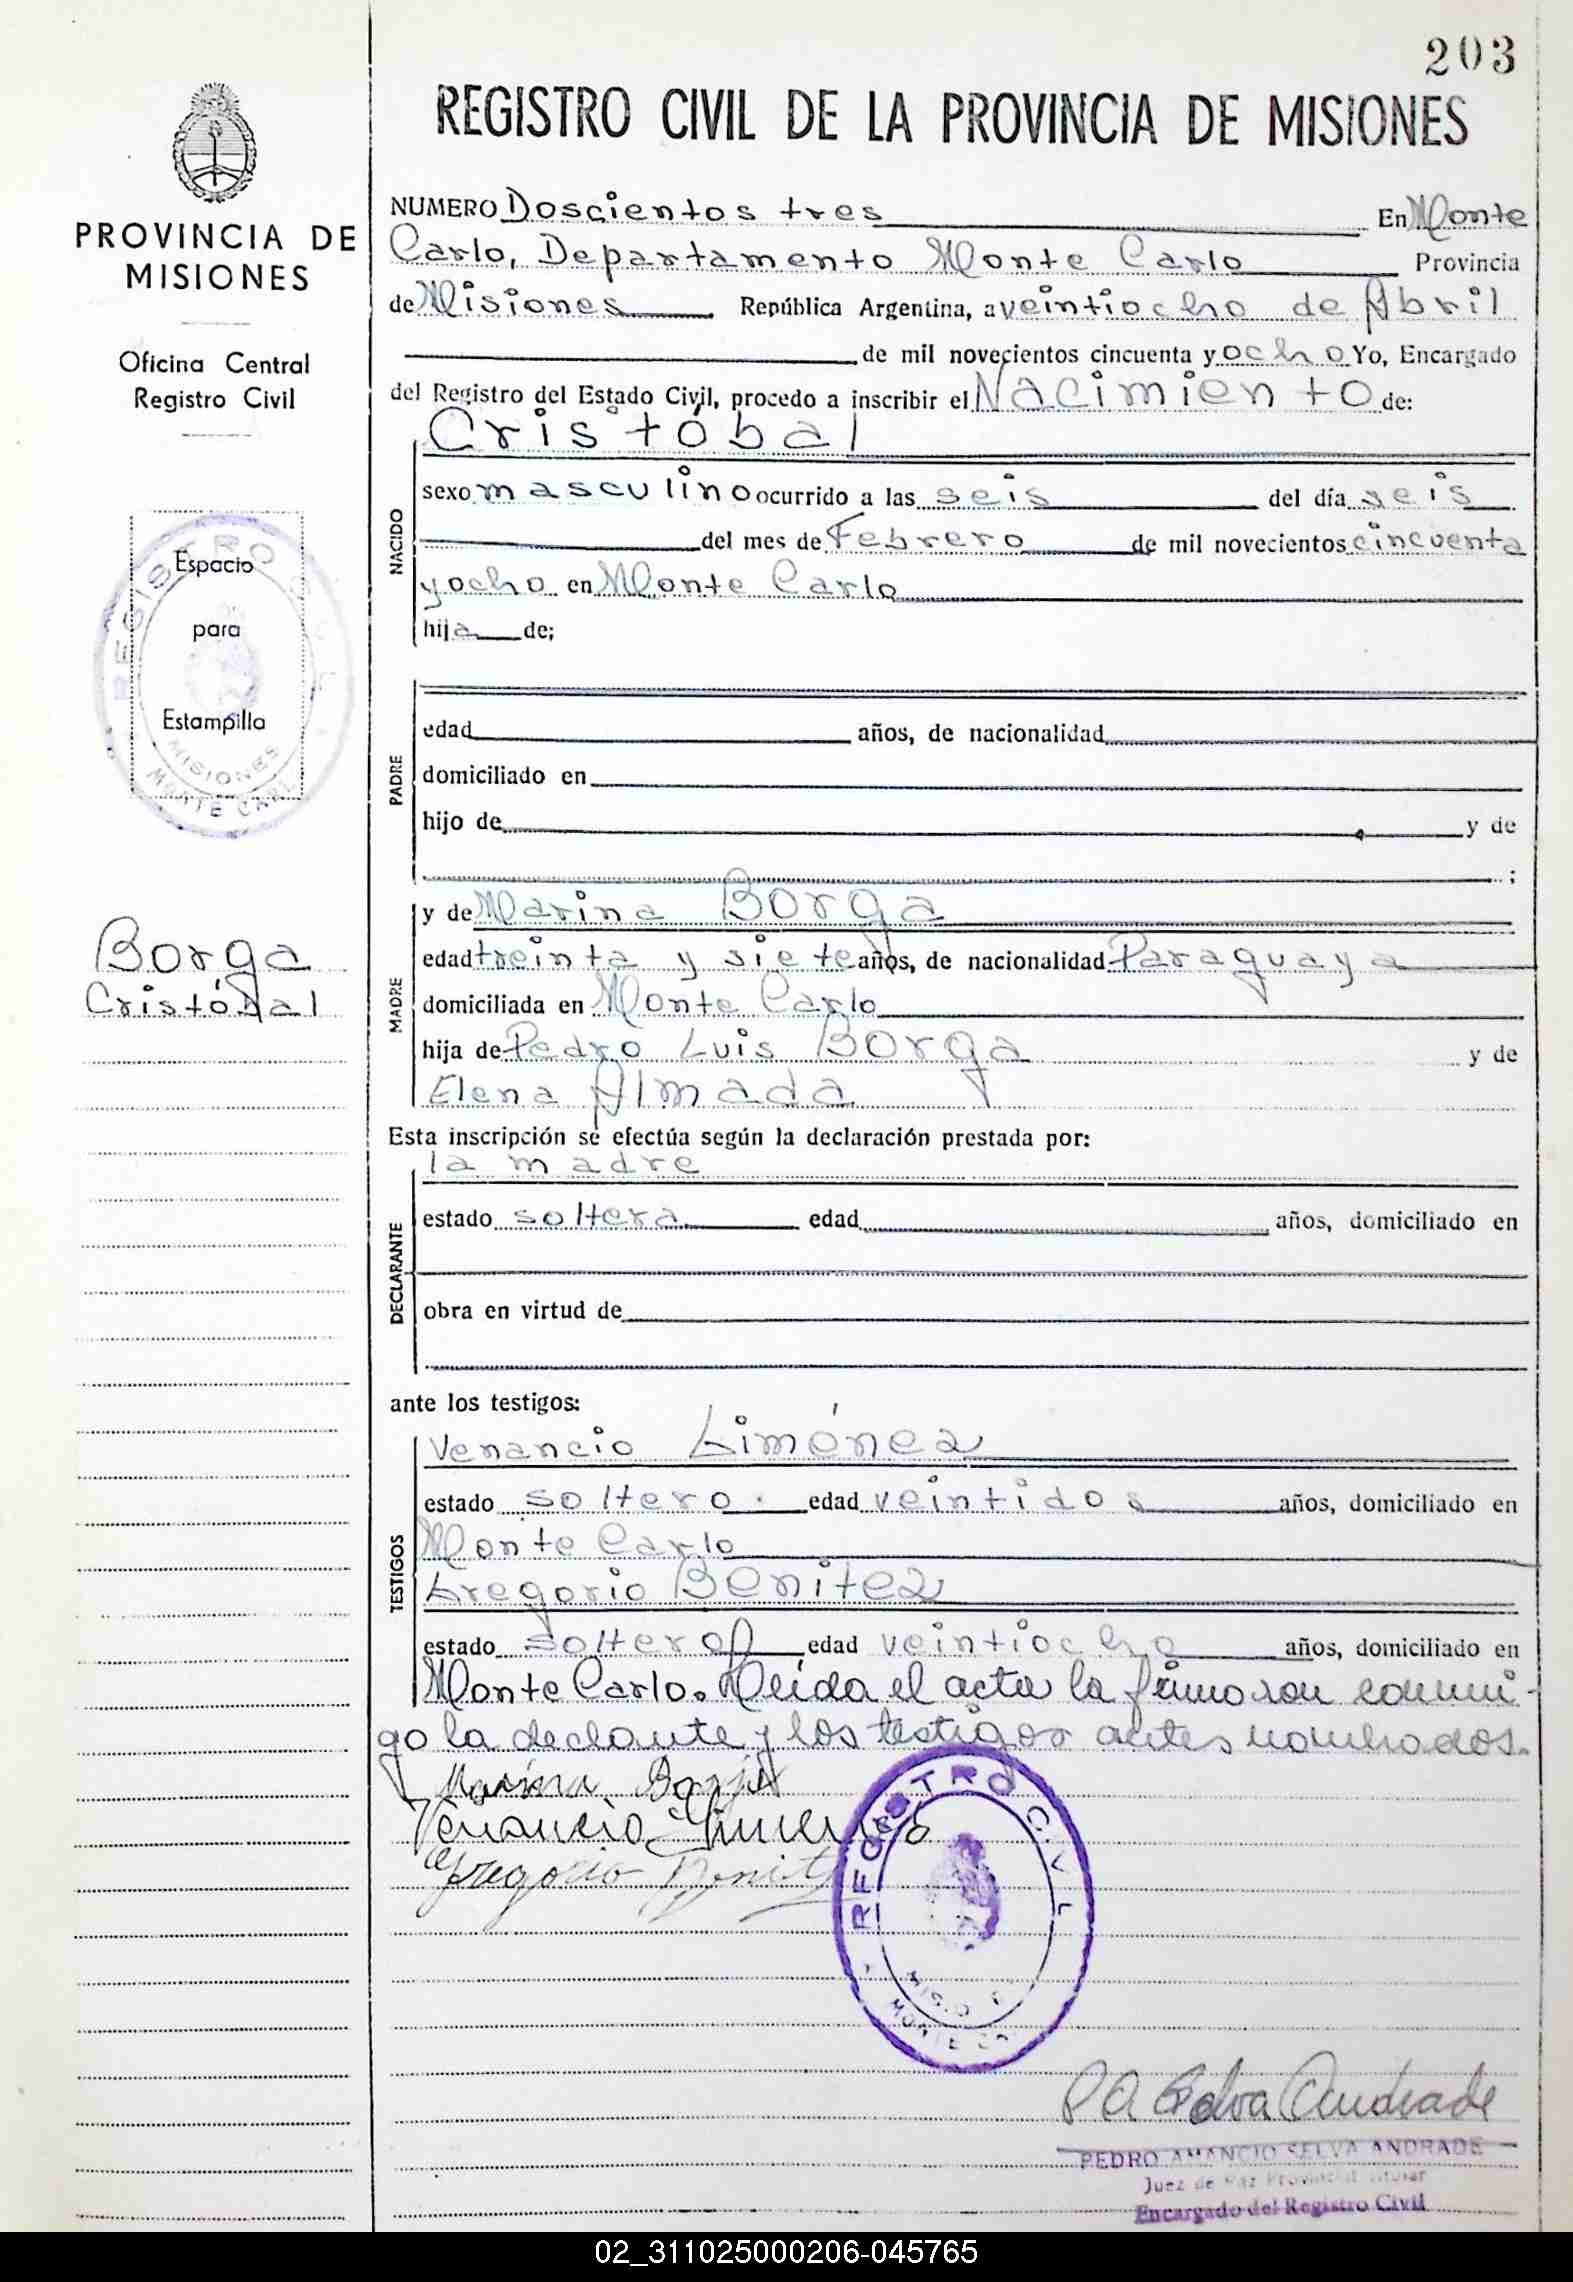 203
REGISTRO CIVIL DE LA PROVINCIA DE MISIONES
PROVINCIA DE
MISIONES
Oficina Central
Registro Civil
Espacio
para
Estampilla
REGISTRO CIVIL
MISIONES
MONTE CARL
Borga
Cristóbal
NUMERO Doscientos tres En Monte
Carlo, Departamento Monte Carlo Provincia
de Misiones República Argentina, a veintiocho de Abril
de mil novecientos cincuenta y ocho Yo, Encargado
del Registro del Estado Civil, procedo a inscribir el Nacimiento de:
Cristóbal
NACIDO
sexo masculino ocurrido a las seis del día seis
del mes de Febrero de mil novecientos cincuenta
y ocho en Monte Carlo
hija de;
PADRE
edad años, de nacionalidad
domiciliado en
hijo de y de
;
MADRE
y de Marina Borga
edad treinta y siete años, de nacionalidad Paraguaya
domiciliada en Monte Carlo
hija de Pedro Luis Borga y de
Elena Almada
Esta inscripción se efectúa según la declaración prestada por:
la madre
DECLARANTE
estado soltera edad años, domiciliado en
obra en virtud de
ante los testigos:
TESTIGOS
Venancio Giménez
estado soltero edad veintidos años, domiciliado en
Monte Carlo
Gregorio Benitez
estado soltero edad veintiocho años, domiciliado en
Monte Carlo. Leída el acta la firmaron conmi-
go la declante y los testigos antes nombrados.
Marina Borga
Venancio Gimenes
Gregorio Benit
REGISTRO CIVIL
P A Selva Andrade
PEDRO AMANCIO SELVA ANDRADE
Juez de Paz Provincial Titular
Encargado del Registro Civil
02_311025000206-045765